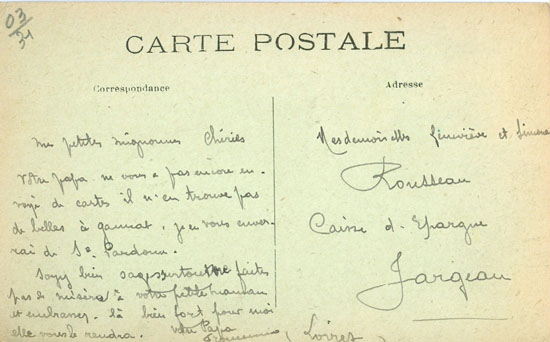 03/31
CARTE POSTALE
Correspondance
Adresse
Mes petites mignonnes Chéries
Votre papa ne vous a pas encore en-
voyé de cartes il n'en trouve pas
de belles à gannat, je en vous enver-
rai de St Pardoux.
Soyez bien sages surtout ne faites
pas de misère à votre petite maman
et embrassez-la bien fort pour moi
elle vous le rendra. votre Papa
Mesdemoiselles Geneviève et Simone
Rousseau
Caisse d'Epargne
Jargeau
(Loiret)